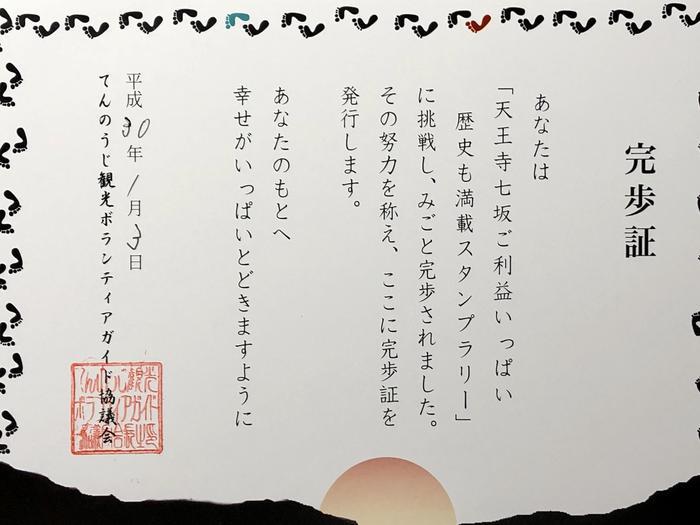 完歩証
あなたは
「天王寺七坂ご利益いっぱい
歴史も満載スタンプラリー」
に挑戦し、みごと完歩されました。
その努力を称え、ここに完歩証を
発行します。
あなたのもとへ
幸せがいっぱいとどきますように
平成30年1月3日
てんのうじ観光ボランティアガイド協議会